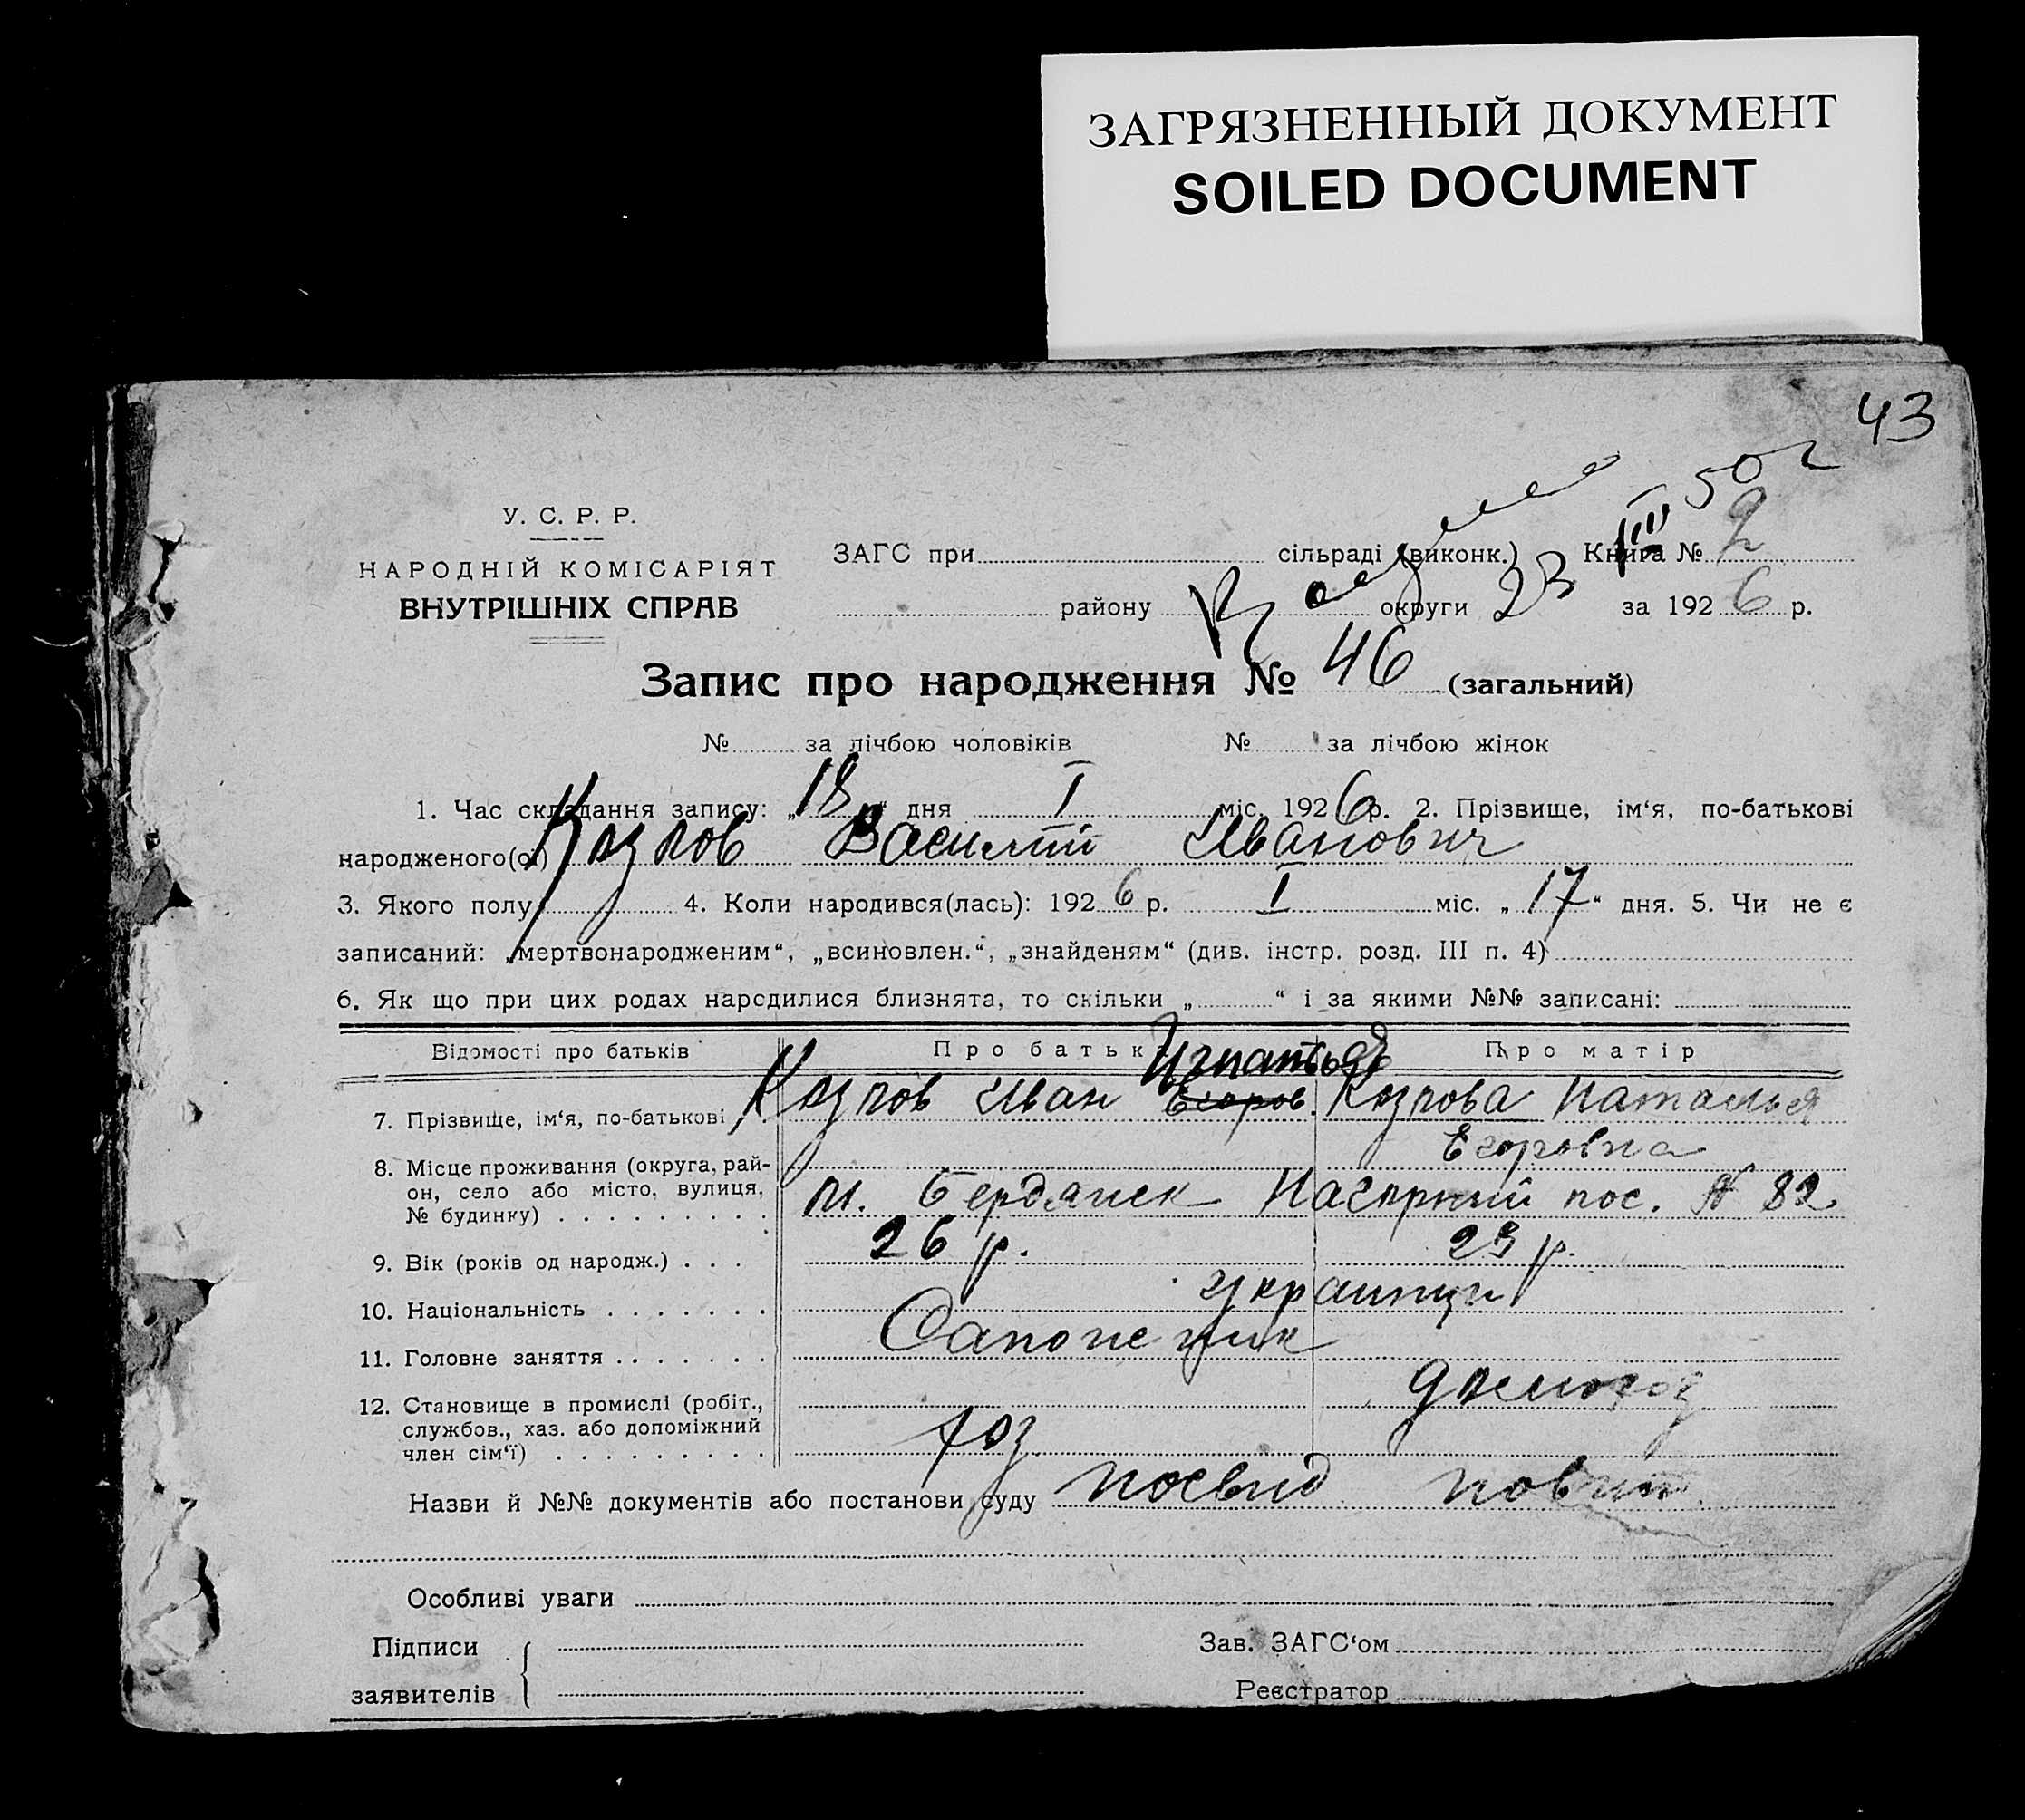 ЗАГРЯЗНЕННЫЙ ДОКУМЕНТ
SOILED DOCUMENT
43
У. С. Р. Р.
НАРОДНІЙ КОМІСАРІЯТ
ВНУТРІШНІХ СПРАВ
50 г
III
23
ЗАГС при сільраді (виконк.) Книга № 2
району округи за 1926 р.
Запис про народження № 46 (загальний)
№ за лічбою чоловіків № за лічбою жінок
1. Час складання запису: „18“ дня I міс. 1926 р. 2. Прізвище, ім‘я, по-батькові
народженого(ої) Козлов Василий Иванович
3. Якого полу 4. Коли народився(лась): 1926 р. I міс. „17“ дня. 5. Чи не є
записаний: „мертвонародженим“, „всиновлен.“, „знайденям“ (див. інстр. розд. III п. 4)
6. Як що при цих родах народилися близнята, то скільки „ “ і за якими №№ записані:
Відомості про батьків Про батьк Про матір
7. Прізвище, ім‘я, по-батькові Козлов Иван Егоров. Козлова Наталья
Егоровна
8. Місце проживання (округа, рай-
он, село або місто, вулиця,
№ будинку) м. Бердянск Нагорний пос. № 82
9. Вік (років од народж.) 26 р. 23 р.
10. Національність украинци
11. Головне заняття Сапожник
12. Становище в промислі (робіт.,
службов., хаз. або допоміжний
член сім‘ї) хоз
Назви й №№ документів або постанови суду посвид повит
Особливі уваги
Підписи
заявителів
Зав. ЗАГС‘ом
Реєстратор